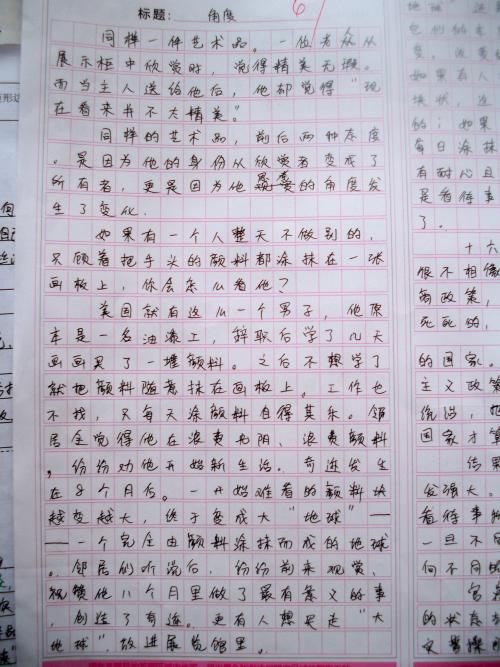 标题： 角度
6
同样一件艺术品。一位老众从
展示柜中欣赏时，觉得精美无瑕。
而当主人送给他后，他却觉得“现
在看来并不太精美”。
同样的艺术品，前后两种态度
。是因为他的身份从欣赏者变成了
所有者，更是因为他观赏的角度发
生了变化.
如果有一个人整天不做别的，
只顾着把手头的颜料都涂抹在一张
画板上，你会怎么看他？
美国就有这么一个男子，他原
本是一名油漆工，辞职后学了几天
画画买了一堆颜料。之后不想学了
就把颜料随意抹在画板上。工作也
不找，只每天涂颜料自得其乐。邻
居全觉得他在浪费光阴、浪费颜料
，份份劝他开始新生活。奇迹发生
在8个月后。一开始难看的颜料块
越变越大，终于变成大“地球”—
—一个完全由颜料涂抹而成的地球
。邻居们听说后，份份前来观赏、
祝贺他八个月里做了最有意义的事
，创造了奇迹。更有人想买走“大
地球”，放进展览馆里。
地球”
包们的
如果有人
块状，
的；如果
每日涂抹
有耐心且
是看待事
了。
十六
很不相像
的政策，
死死的，
的国家。
主义政策
统治，
国家才
结果
发强大。
看待事物
一旦不
何不用
的状态